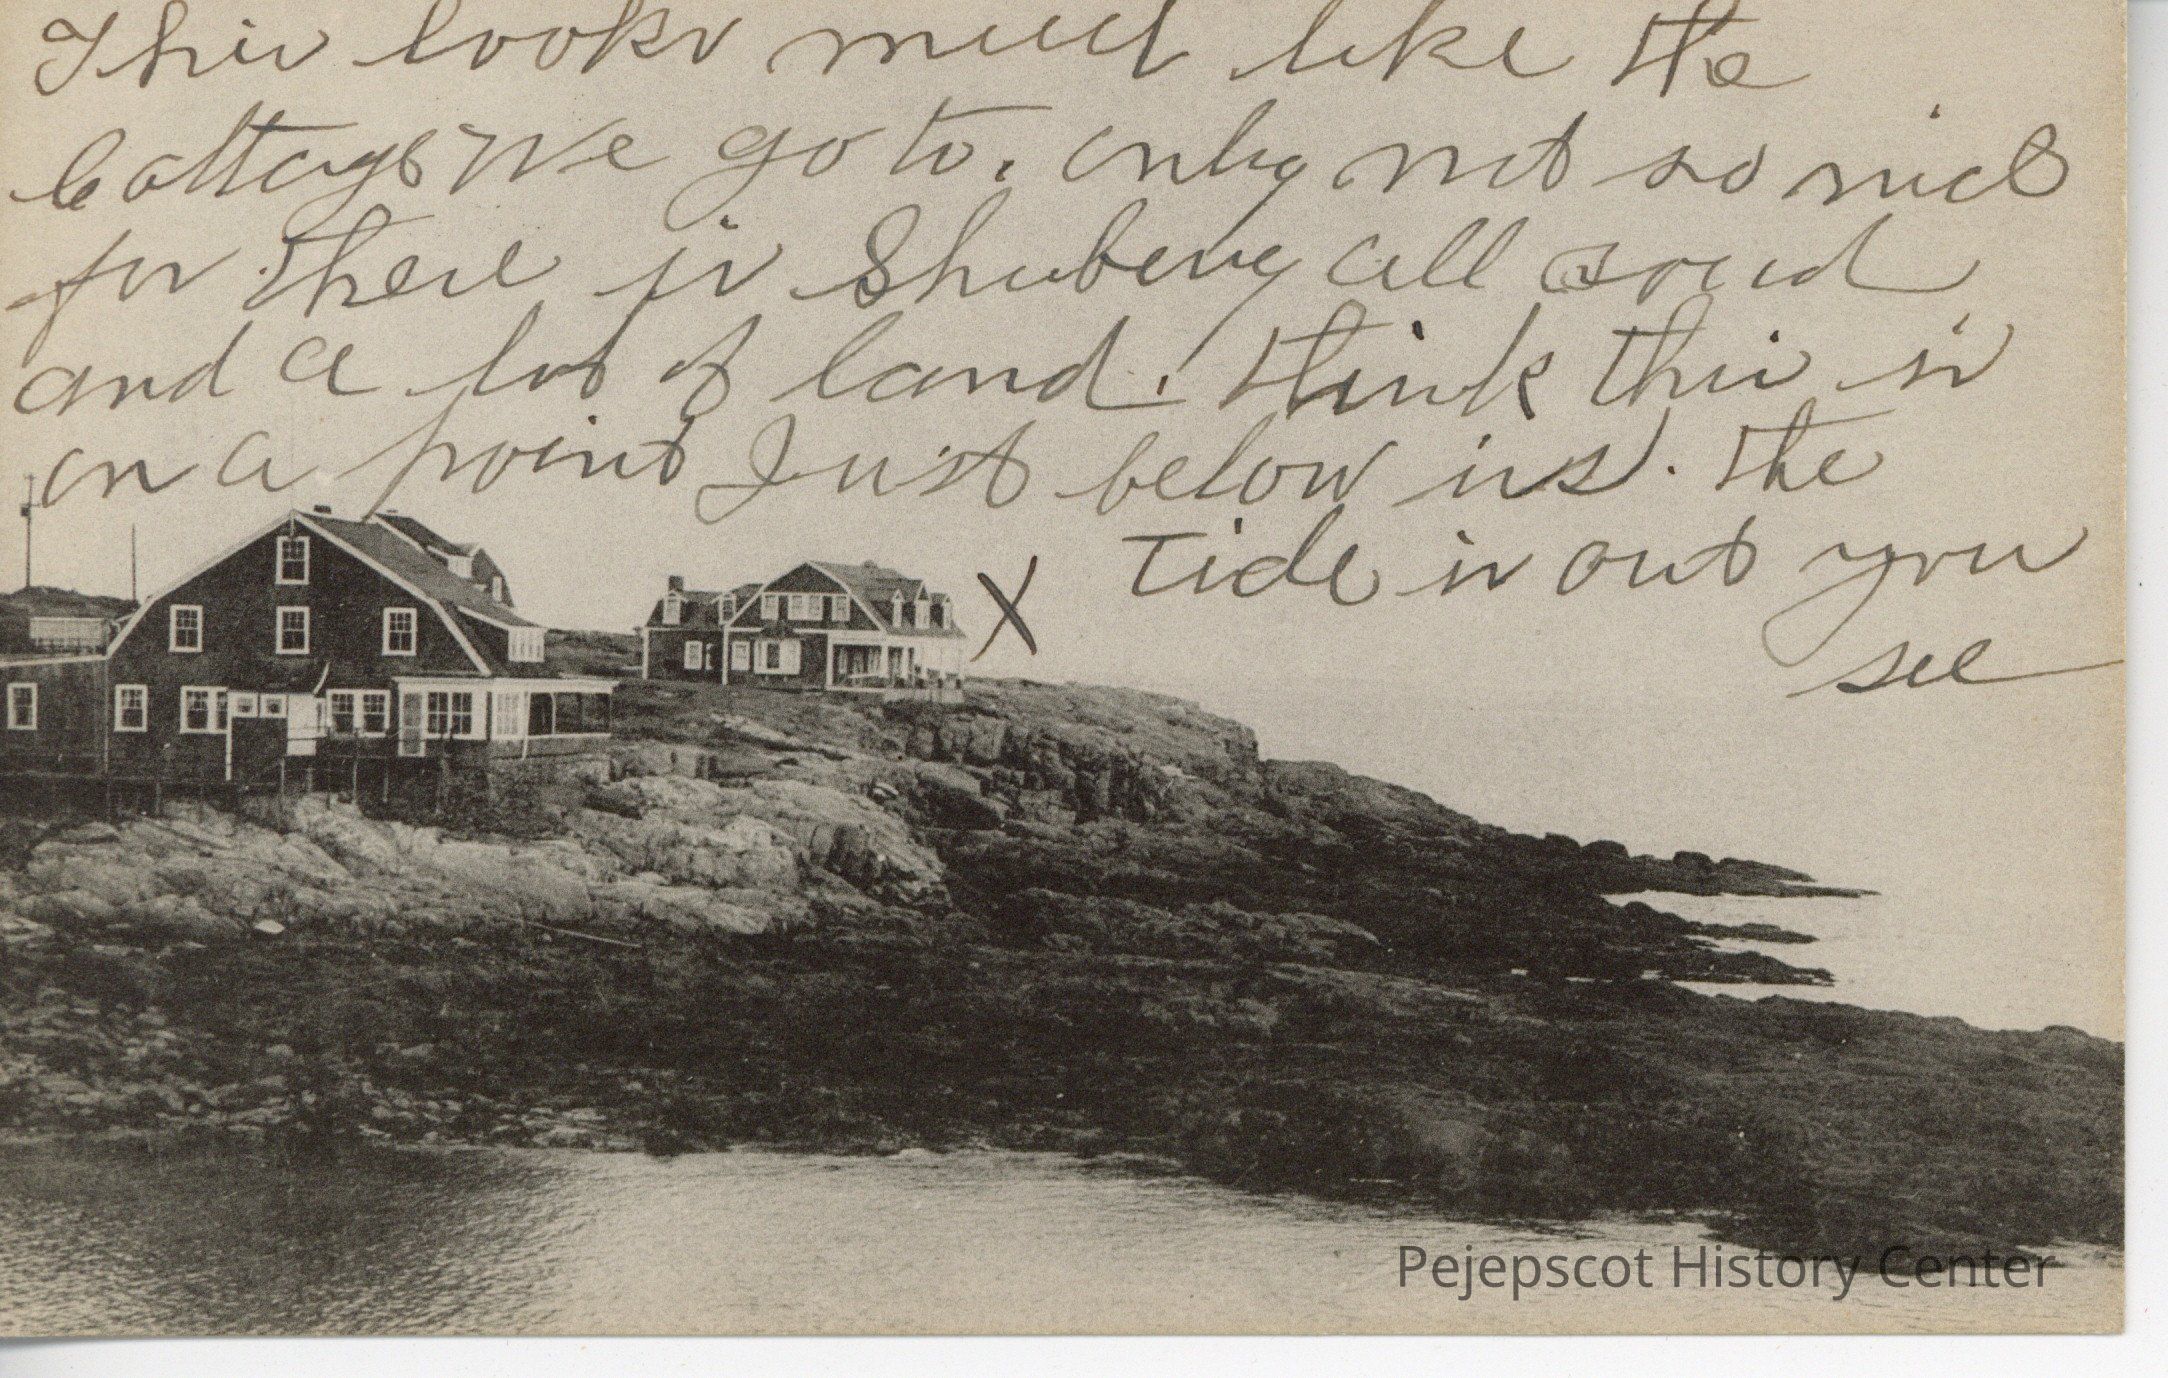 This looks much like the
Cottage we go to. only not so nice
for there is Shubery all aroud
and a lot of land. think this is
on a point Just below us. the
tide is out you
see
X
Pejepscot History Center